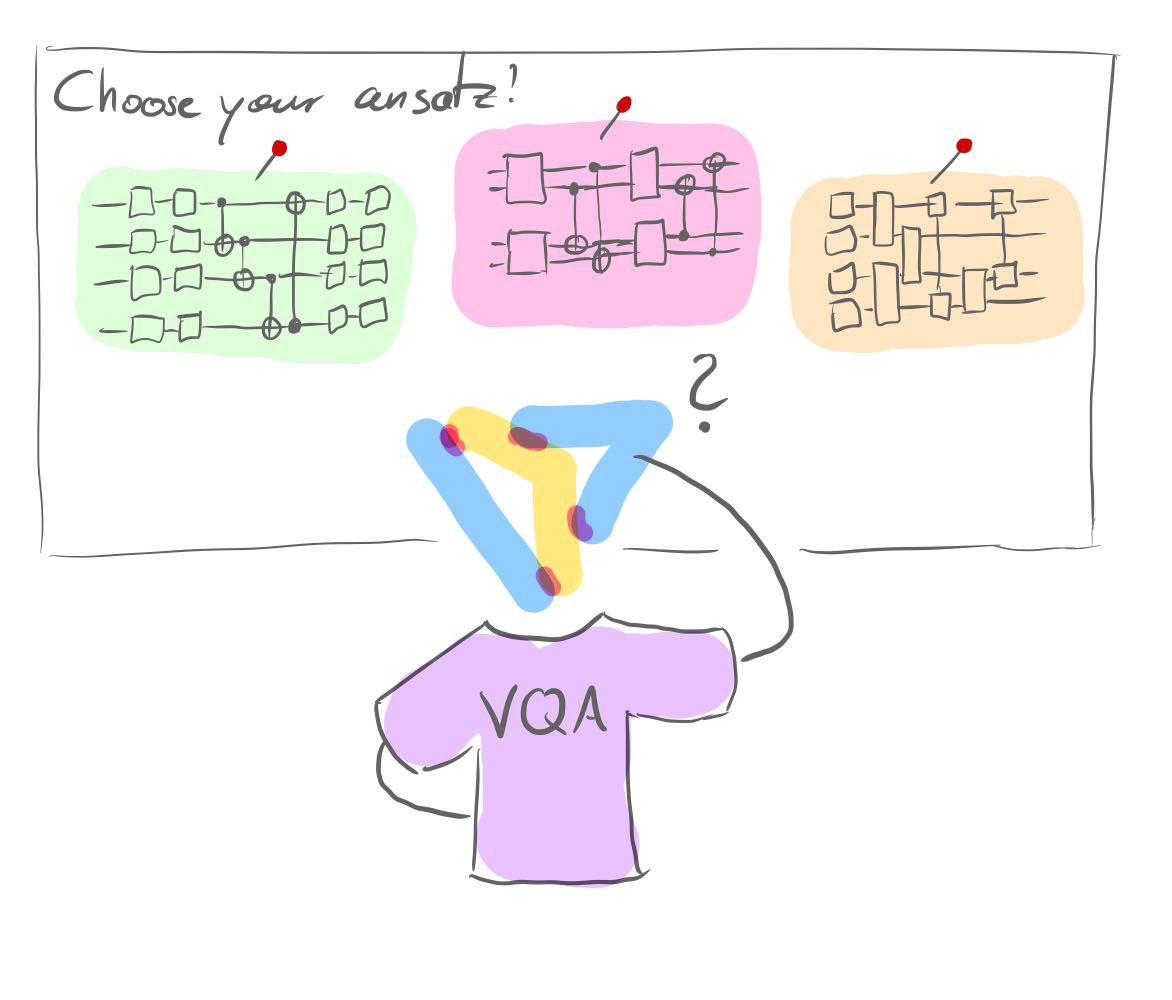 Choose your ansatz!
?
VQA